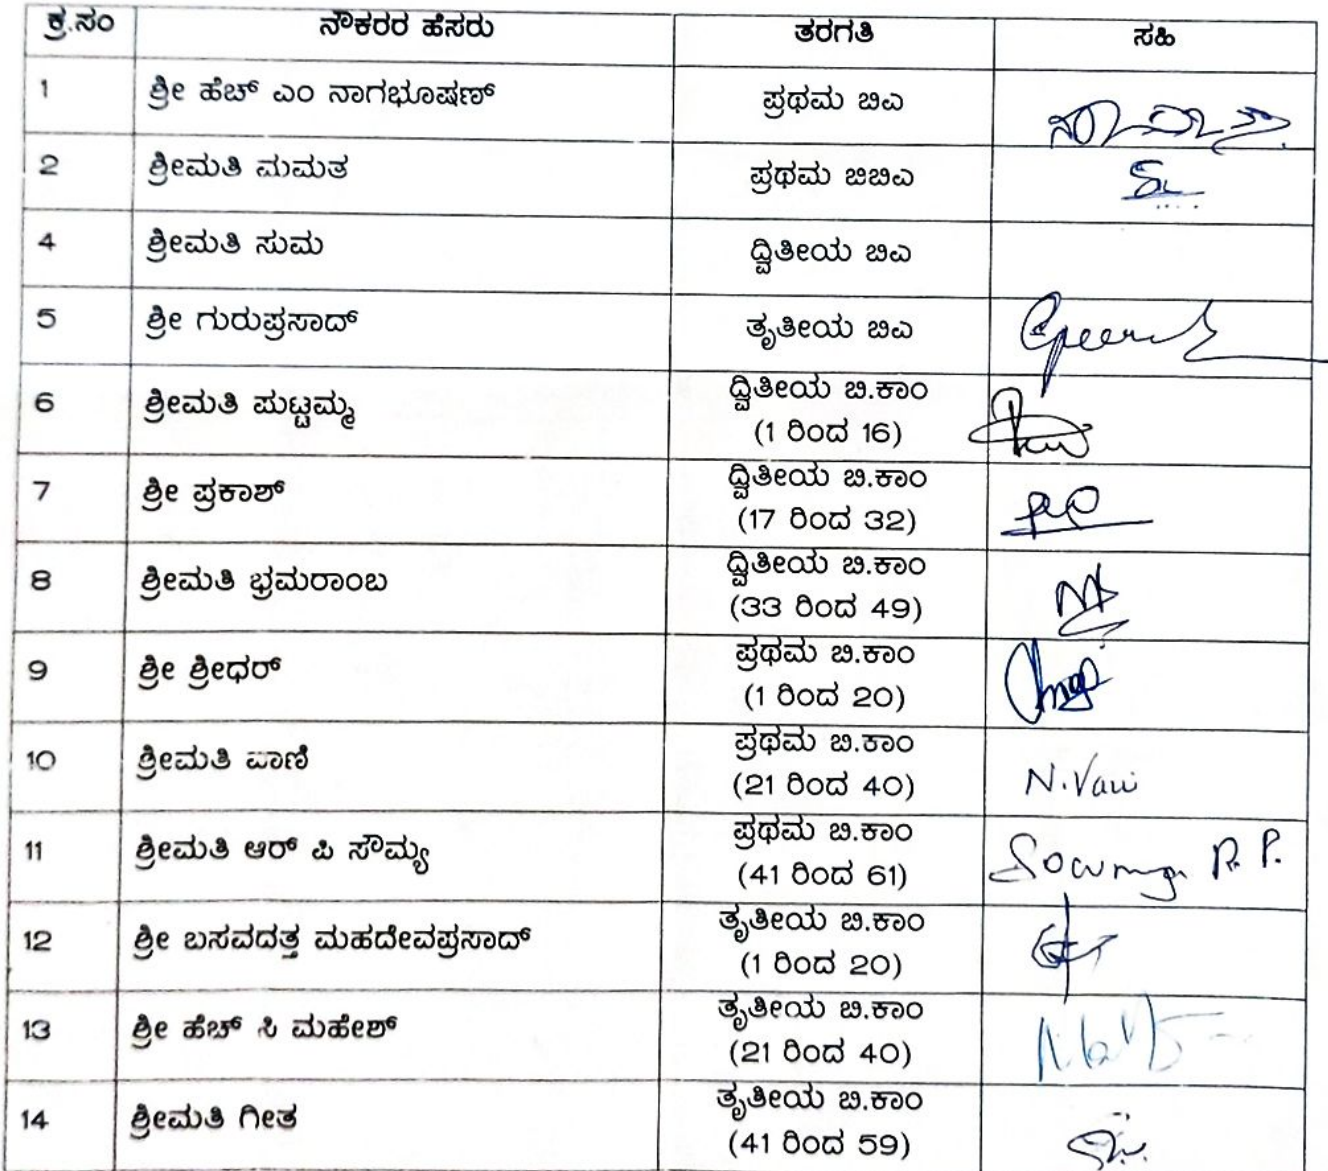 ಕ್ರ.ಸಂ ನೌಕರರ ಹೆಸರು ತರಗತಿ ಸಹಿ
1 ಶ್ರೀ ಹೆಚ್ ಎಂ ನಾಗಭೂಷಣ್ ಪ್ರಥಮ ಬಿಎ
2 ಶ್ರೀಮತಿ ಮಮತ ಪ್ರಥಮ ಬಿಬಿಎ
4 ಶ್ರೀಮತಿ ಸುಮ ದ್ವಿತೀಯ ಬಿಎ
5 ಶ್ರೀ ಗುರುಪ್ರಸಾದ್ ತೃತೀಯ ಬಿಎ
6 ಶ್ರೀಮತಿ ಪುಟ್ಟಮ್ಮ ದ್ವಿತೀಯ ಬಿ.ಕಾಂ
(1 ರಿಂದ 16)
7 ಶ್ರೀ ಪ್ರಕಾಶ್ ದ್ವಿತೀಯ ಬಿ.ಕಾಂ
(17 ರಿಂದ 32)
8 ಶ್ರೀಮತಿ ಭ್ರಮರಾಂಬ ದ್ವಿತೀಯ ಬಿ.ಕಾಂ
(33 ರಿಂದ 49)
9 ಶ್ರೀ ಶ್ರೀಧರ್ ಪ್ರಥಮ ಬಿ.ಕಾಂ
(1 ರಿಂದ 20)
10 ಶ್ರೀಮತಿ ವಾಣಿ ಪ್ರಥಮ ಬಿ.ಕಾಂ
(21 ರಿಂದ 40) N.Vani
11 ಶ್ರೀಮತಿ ಆರ್ ಪಿ ಸೌಮ್ಯ ಪ್ರಥಮ ಬಿ.ಕಾಂ
(41 ರಿಂದ 61) Sowmya R. P.
12 ಶ್ರೀ ಬಸವದತ್ತ ಮಹದೇವಪ್ರಸಾದ್ ತೃತೀಯ ಬಿ.ಕಾಂ
(1 ರಿಂದ 20)
13 ಶ್ರೀ ಹೆಚ್ ಸಿ ಮಹೇಶ್ ತೃತೀಯ ಬಿ.ಕಾಂ
(21 ರಿಂದ 40)
14 ಶ್ರೀಮತಿ ಗೀತ ತೃತೀಯ ಬಿ.ಕಾಂ
(41 ರಿಂದ 59)